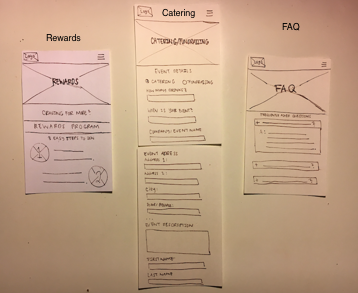 Rewards
Catering
FAQ
Logo
REWARDS
CRAVING FOR MORE?
REWARDS PROGRAM
Logo
CATERING/FUNDRAISING
EVENT DETAILS
CATERING FUNDRAISING
HOW MANY PEOPLE?
WHEN IS YOUR EVENT?
COMPANY/EVENT NAME
EVENT ADDRESS
ADDRESS 1:
ADDRESS 2:
CITY:
EVENT DESCRIPTION
FIRST NAME:
LAST NAME:
Logo
FAQ
FREQUENTLY ASKED QUESTIONS